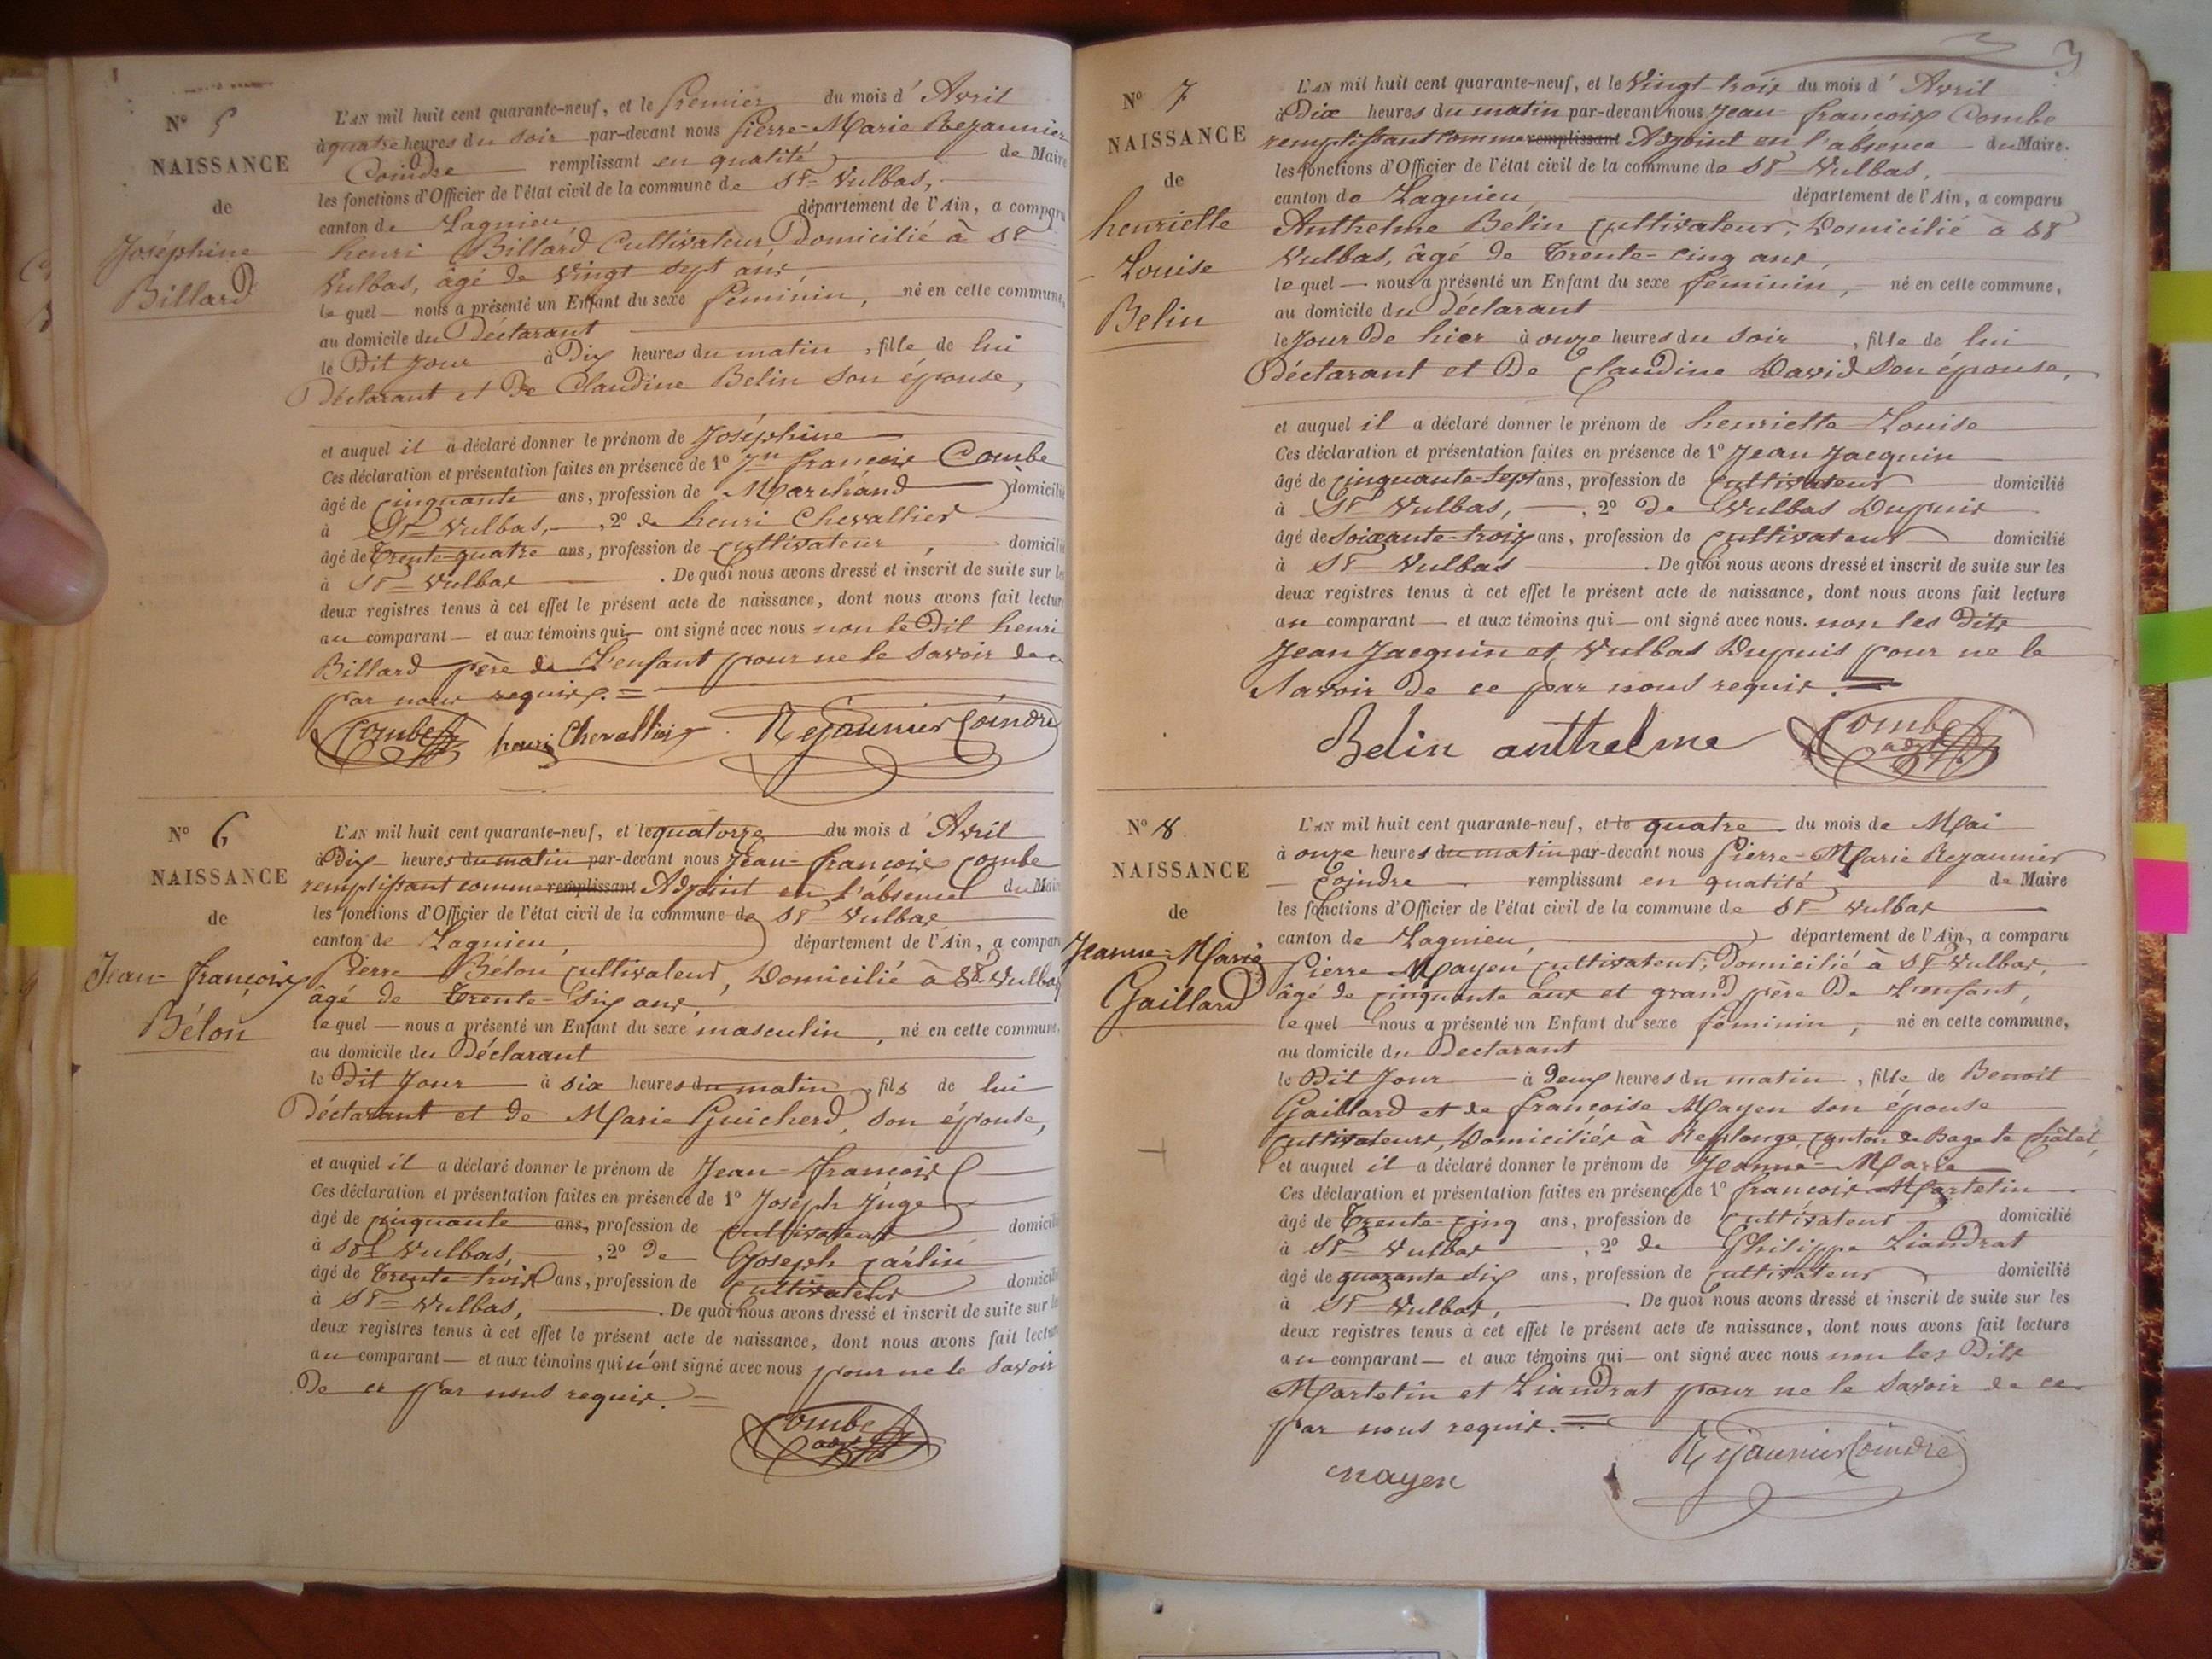 Nº 5
NAISSANCE
de
Joséphine
Billard
L'AN mil huit cent quarante-neuf, et le Premier du mois d' Avril
à quatre heures du soir par-devant nous Pierre-Marie Rejaunier
Coindre remplissant en qualité de Maire
les fonctions d'Officier de l'état civil de la commune de St Vulbas,
canton de Lagnieu département de l'Ain, a comparu
henri Billard Cultivateur, Domicilié à St
Vulbas, âgé de Vingt sept ans,
lequel nous a présenté un Enfant du sexe féminin, né en cette commune,
au domicile du Déclarant
le Dit Jour à Dix heures du matin, fille de lui
Déclarant et De Claudine Belin Son épouse,
et auquel il a déclaré donner le prénom de Joséphine
Ces déclaration et présentation faites en présence de 1º Jn françois Combe
âgé de cinquante ans, profession de Marchand domicilié
à St Vulbas, 2º de henri Chevallier
âgé de Trente-quatre ans, profession de Cultivateur, domicilié
à St Vulbas. De quoi nous avons dressé et inscrit de suite sur les
deux registres tenus à cet effet le présent acte de naissance, dont nous avons fait lecture
au comparant et aux témoins qui ont signé avec nous non le Dit henri
Billard père de L'enfant pour ne le savoir de ce
par nous requis. =
Combe henri Chevallier Rejaunier Coindre
Nº 6
NAISSANCE
de
Jean-françois
Bélon
L'AN mil huit cent quarante-neuf, et le quatorze du mois d' Avril
à Dix heures du matin par-devant nous Jean-françois Combe
remplissant comme remplissant Adjoint en l'absence du Maire
les fonctions d'Officier de l'état civil de la commune de St Vulbas
canton de Lagnieu, département de l'Ain, a comparu
Pierre Bélon cultivateur, Domicilié à St Vulbas
âgé de Trente-Six ans,
lequel nous a présenté un Enfant du sexe masculin, né en cette commune,
au domicile du Déclarant
le Dit Jour à six heures du matin, fils de lui
Déclarant et de Marie Guicherd, son épouse,
et auquel il a déclaré donner le prénom de Jean-françois
Ces déclaration et présentation faites en présence de 1º Joseph Juge
âgé de cinquante ans, profession de cultivateur domicilié
à St Vulbas, 2º de Joseph Carlin
âgé de Trente-trois ans, profession de cultivateur domicilié
à St Vulbas, De quoi nous avons dressé et inscrit de suite sur les
deux registres tenus à cet effet le présent acte de naissance, dont nous avons fait lecture
au comparant et aux témoins qui n'ont signé avec nous pour ne le savoir
De ce par nous requis. =
Combe
adjt
3
Nº 7
NAISSANCE
de
henriette
Louise
Belin
L'AN mil huit cent quarante-neuf, et le Vingt trois du mois d' Avril
à Dix heures du matin par-devant nous Jean-françois Combe
remplissant comme remplissant Adjoint en l'absence du Maire.
les fonctions d'Officier de l'état civil de la commune de St Vulbas,
canton de Lagnieu département de l'Ain, a comparu
Anthelme Belin Cultivateur, Domicilié à St
Vulbas, âgé de Trente-cinq ans,
lequel nous a présenté un Enfant du sexe féminin, né en cette commune,
au domicile du Déclarant
le Jour De hier à onze heures du soir, fille de lui
Déclarant et De Claudine David Son épouse,
et auquel il a déclaré donner le prénom de henriette Louise
Ces déclaration et présentation faites en présence de 1º Jean Jacquin
âgé de cinquante-sept ans, profession de cultivateur domicilié
à St Vulbas, 2º de Vulbas Dupuis
âgé de soixante-trois ans, profession de cultivateur domicilié
à St Vulbas. De quoi nous avons dressé et inscrit de suite sur les
deux registres tenus à cet effet le présent acte de naissance, dont nous avons fait lecture
au comparant et aux témoins qui ont signé avec nous. non les Dits
Jean Jacquin et Vulbas Dupuis pour ne le
Savoir De ce par nous requis. =
Belin anthelme Combe
adjt
Nº 8
NAISSANCE
de
Jeanne-Marie
Gaillard
L'AN mil huit cent quarante-neuf, et le quatre du mois de Mai
à onze heures du matin par-devant nous Pierre-Marie Rejaunier
Coindre remplissant en qualité de Maire
les fonctions d'Officier de l'état civil de la commune de St Vulbas
canton de Lagnieu, département de l'Ain, a comparu
Pierre Mayen cultivateur, Domicilié à St Vulbas,
âgé de cinquante ans et grand père De L'enfant,
lequel nous a présenté un Enfant du sexe féminin, né en cette commune,
au domicile du Déclarant
le Dit Jour à Deux heures du matin, fille de Benoit
Gaillard et de françoise Mayen son épouse
Cultivateurs, Domiciliés à Replonge, Canton de Bagé le Châtel,
et auquel il a déclaré donner le prénom de Jeanne-Marie
Ces déclaration et présentation faites en présence de 1º françois Martelin
âgé de Trente-cinq ans, profession de Cultivateur domicilié
à St Vulbas, 2º de Philippe Liandrat
âgé de quarante six ans, profession de cultivateur domicilié
à St Vulbas, De quoi nous avons dressé et inscrit de suite sur les
deux registres tenus à cet effet le présent acte de naissance, dont nous avons fait lecture
au comparant et aux témoins qui ont signé avec nous non les Dits
Martelin et Liandrat pour ne le savoir de ce
par nous requis. =
mayen Rejaunier Coindre